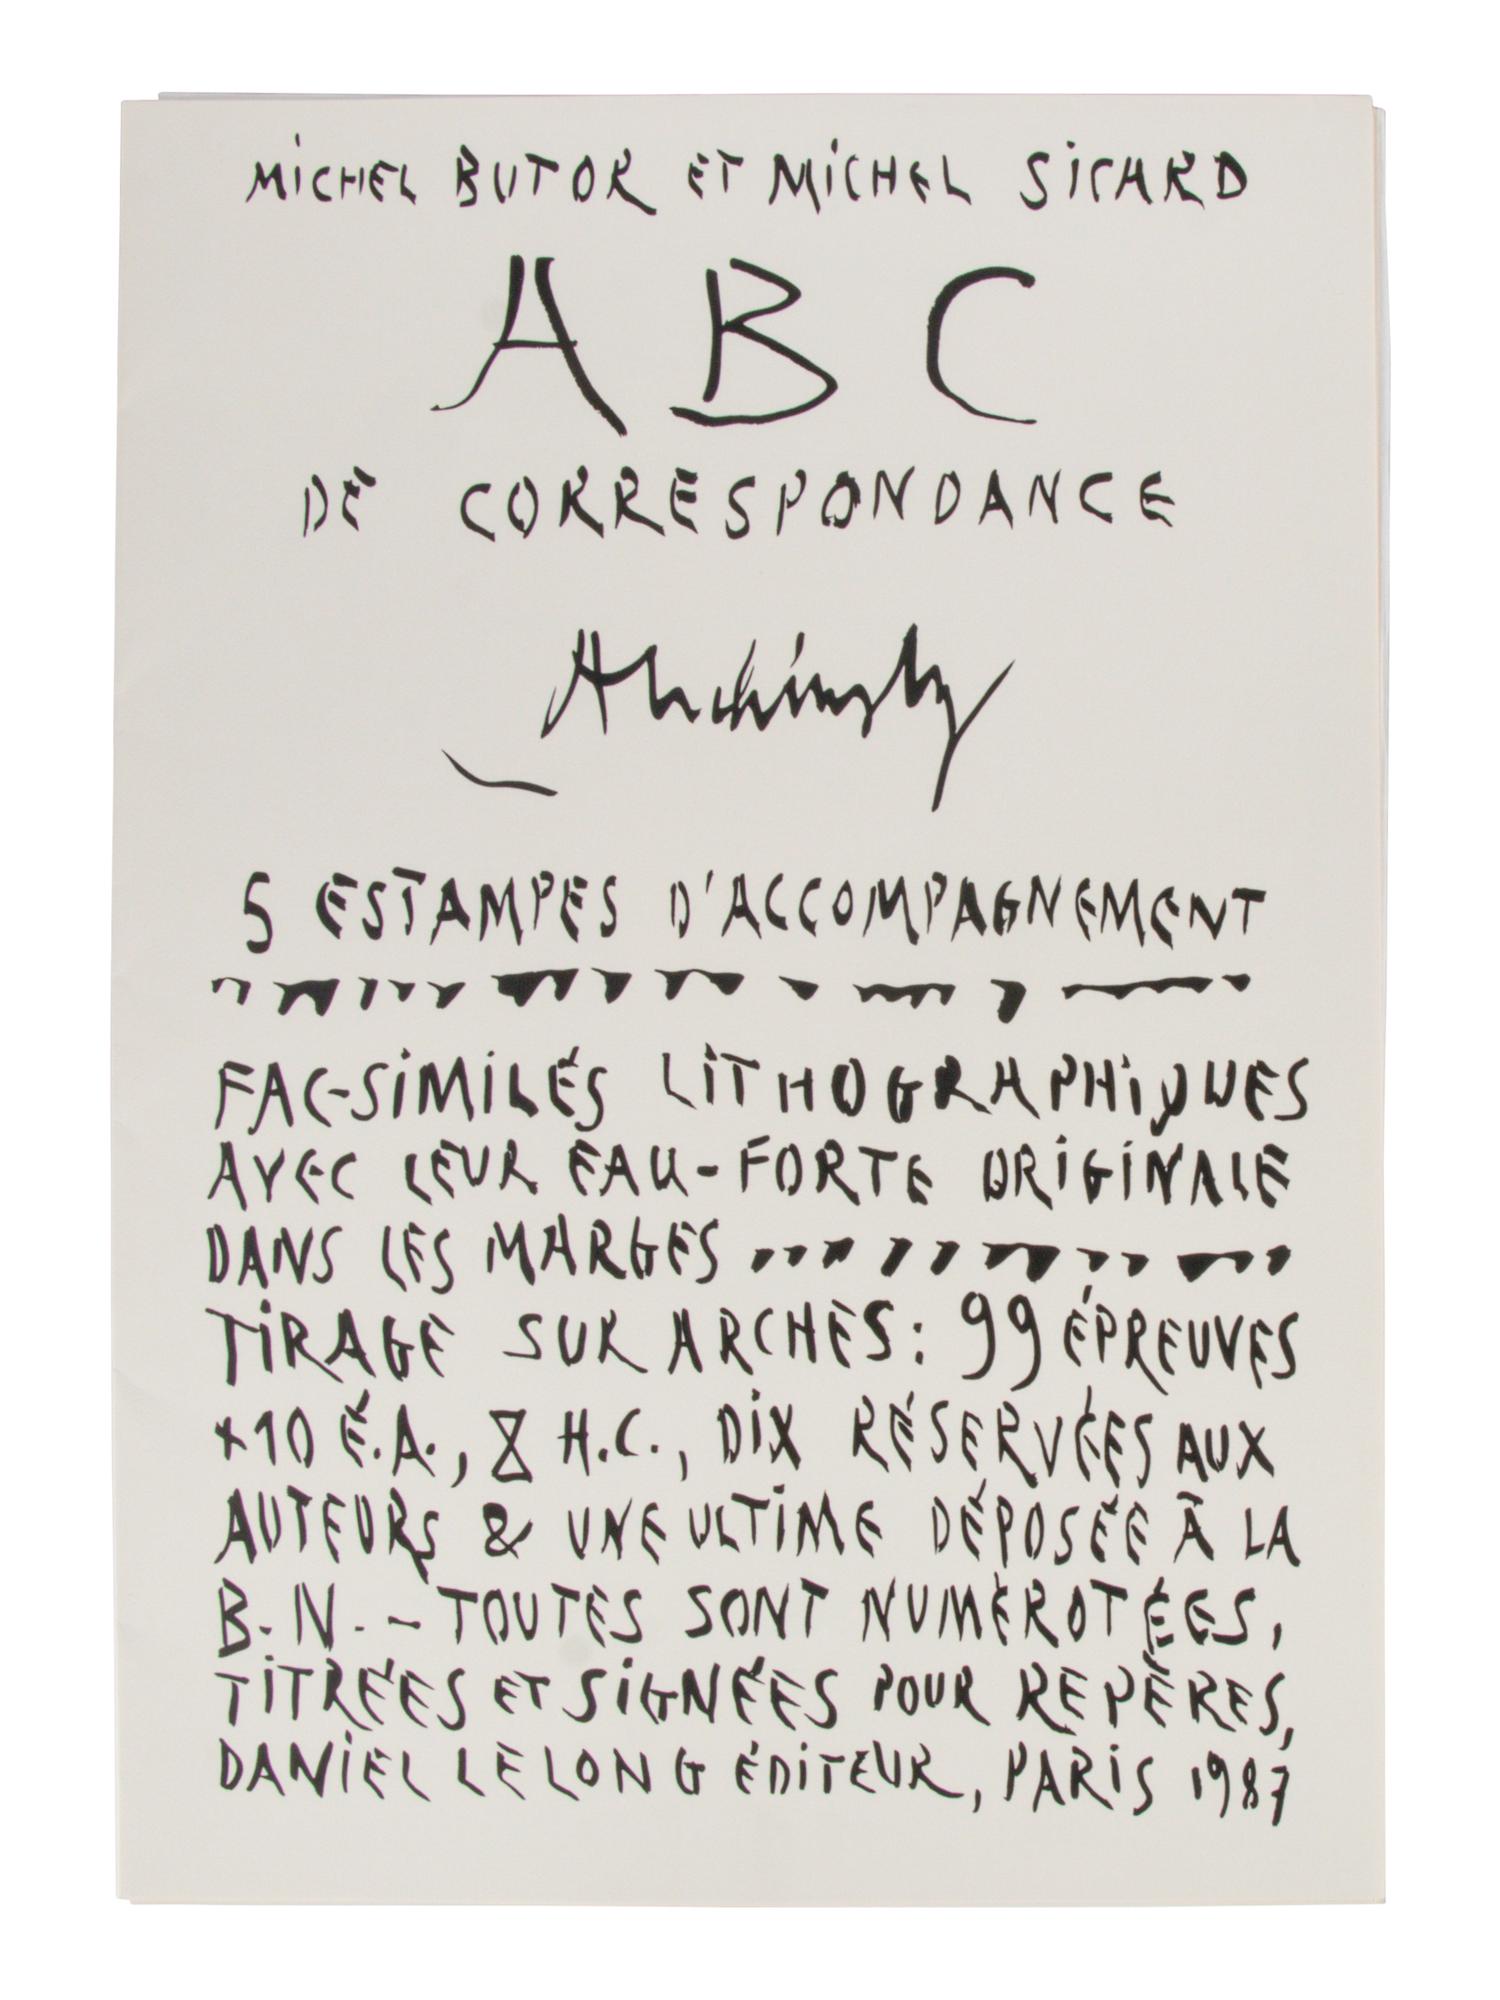 MiCHEL BUTOR ET MiCHEL SiCARD
A B C
DE CORRESPONDANCE
Alechinsky
5 ESTAMPES D'ACCOMPAGNEMENT
FAC-SiMiLÉS LiTHOGRAPHiQUES
AVEC LEUR EAU-FORTE ORiGiNALE
DANS LES MARGES
TiRAGE SUR ARCHES : 99 ÉPREUVES
+10 É.A., 8 H.C., DiX RÉSERVÉES AUX
AUTEURS & UNE ULTiME DÉPOSÉE À LA
B.N. - TOUTES SONT NUMÉROTÉES,
TiTRÉES ET SiGNÉES POUR REPÈRES,
DANiEL LELONG ÉDiTEUR, PARiS 1987